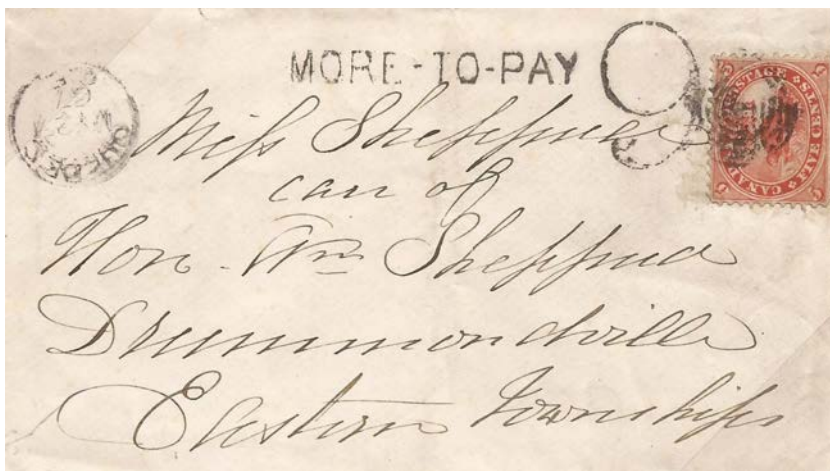 MORE-TO-PAY
QUEBEC
CANADA POSTAGE
FIVE CENTS
5
5
5
5
Miss Sheppard
care of
Hon. Wm Sheppard
Drummondville
Eastern Townships